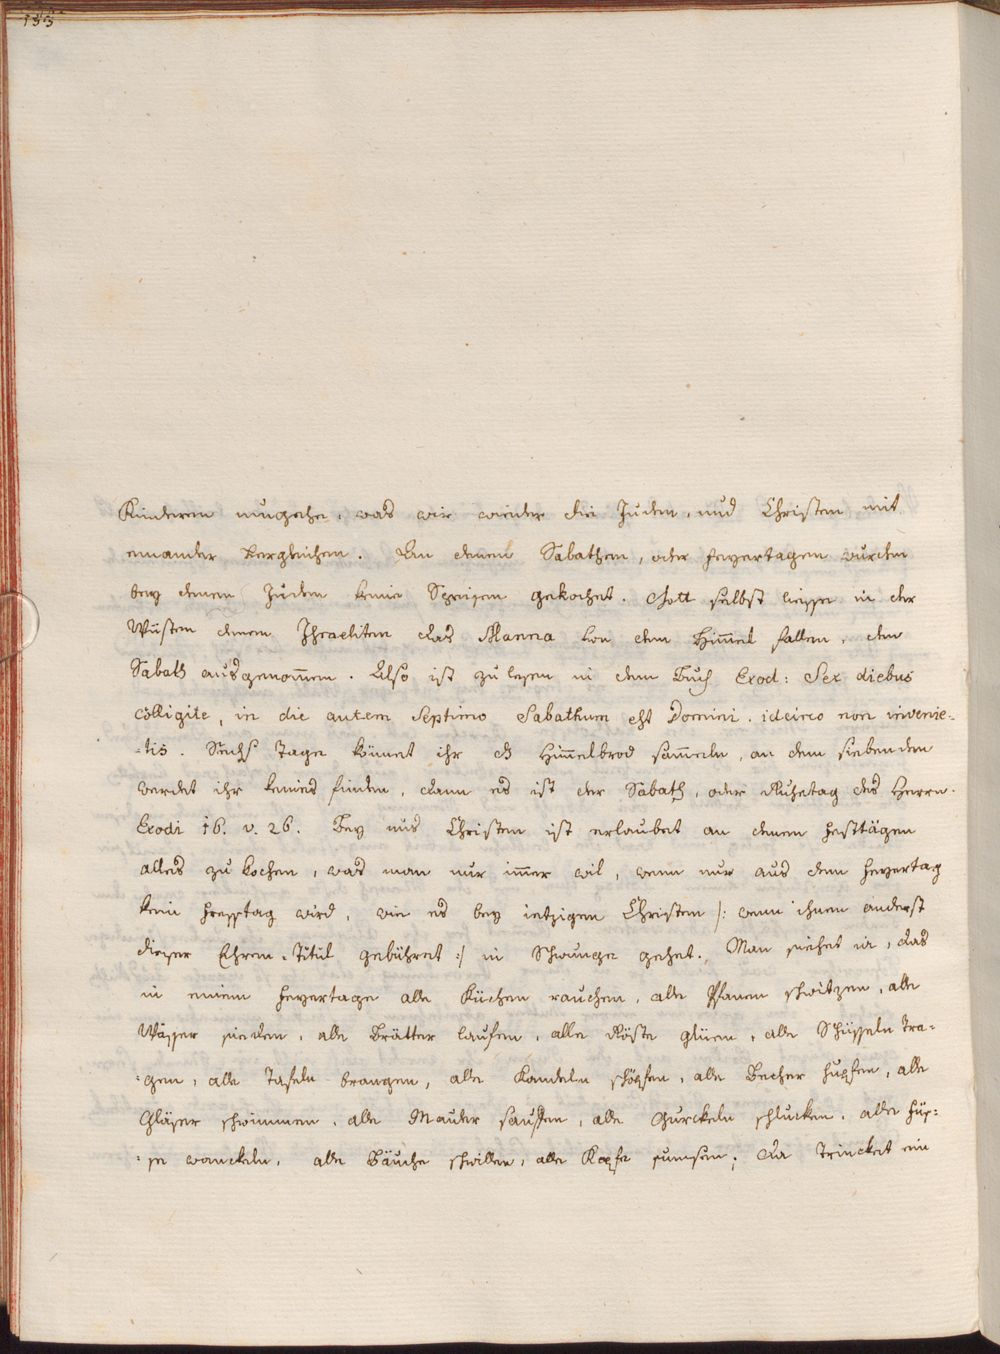 133
Kinderen umgehe, was wir wieder die Juden, und Christen mit
einander vergleichen. An denen Sabathen, oder Feyertagen wurden
bey denen Juden keine Speisen gekochet. Gott selbst liesse in der
Wüsten denen Israeliten das Manna von dem Him̄el fallen, den
Sabath ausgenom̄en. Also ist zu lesen in dem Buch Exod: Sex diebus
colligite, in die autem septimo Sabathum est Domini, idcirco non invenie-
-tis. Sechs Tage könnet ihr ds Him̄elbrod sam̄eln, an dem siebenden
werdet ihr keines finden, dann es ist der Sabath, oder Ruhetag des Herrn.
Exodi 16. v. 26. Bey uns Christen ist erlaubet an denen Festtägen
alles zu kochen, was man nur im̄er wil, wenn nur aus dem Feyertag
kein Fresstag wird, wie es bey ietzigen Christen /: wenn ihnen anderst
dieser Ehren-Titul gebühret :/ in Schwunge gehet. Man siehet ia, das
in einem Feyertage alle Küchen rauchen, alle Pfanen schwitzen, alle
Wässer sieden, alle Brätter laufen, alle Röste glüen, alle Schüsseln tra=
=gen, alle Tafeln brangen, alle Kandeln schöpfen, alle Becher hupfen, alle
Gläser schwimmen, alle Mäuler saufen, alle Gurckeln schlucken, alle Füs=
=se wanckeln, alle Bäuche schwillen, alle Kopfe sumsen; Da trincket ein